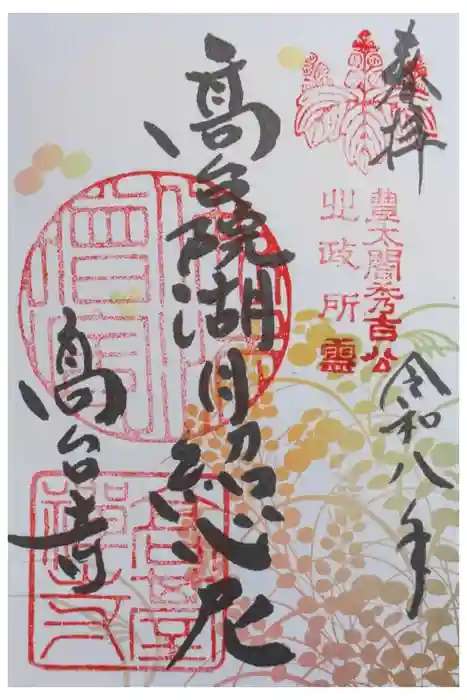 奉拝
令和八年
豊太閤秀吉公
北政所 霊
高台院湖月紹心尼
高台寺